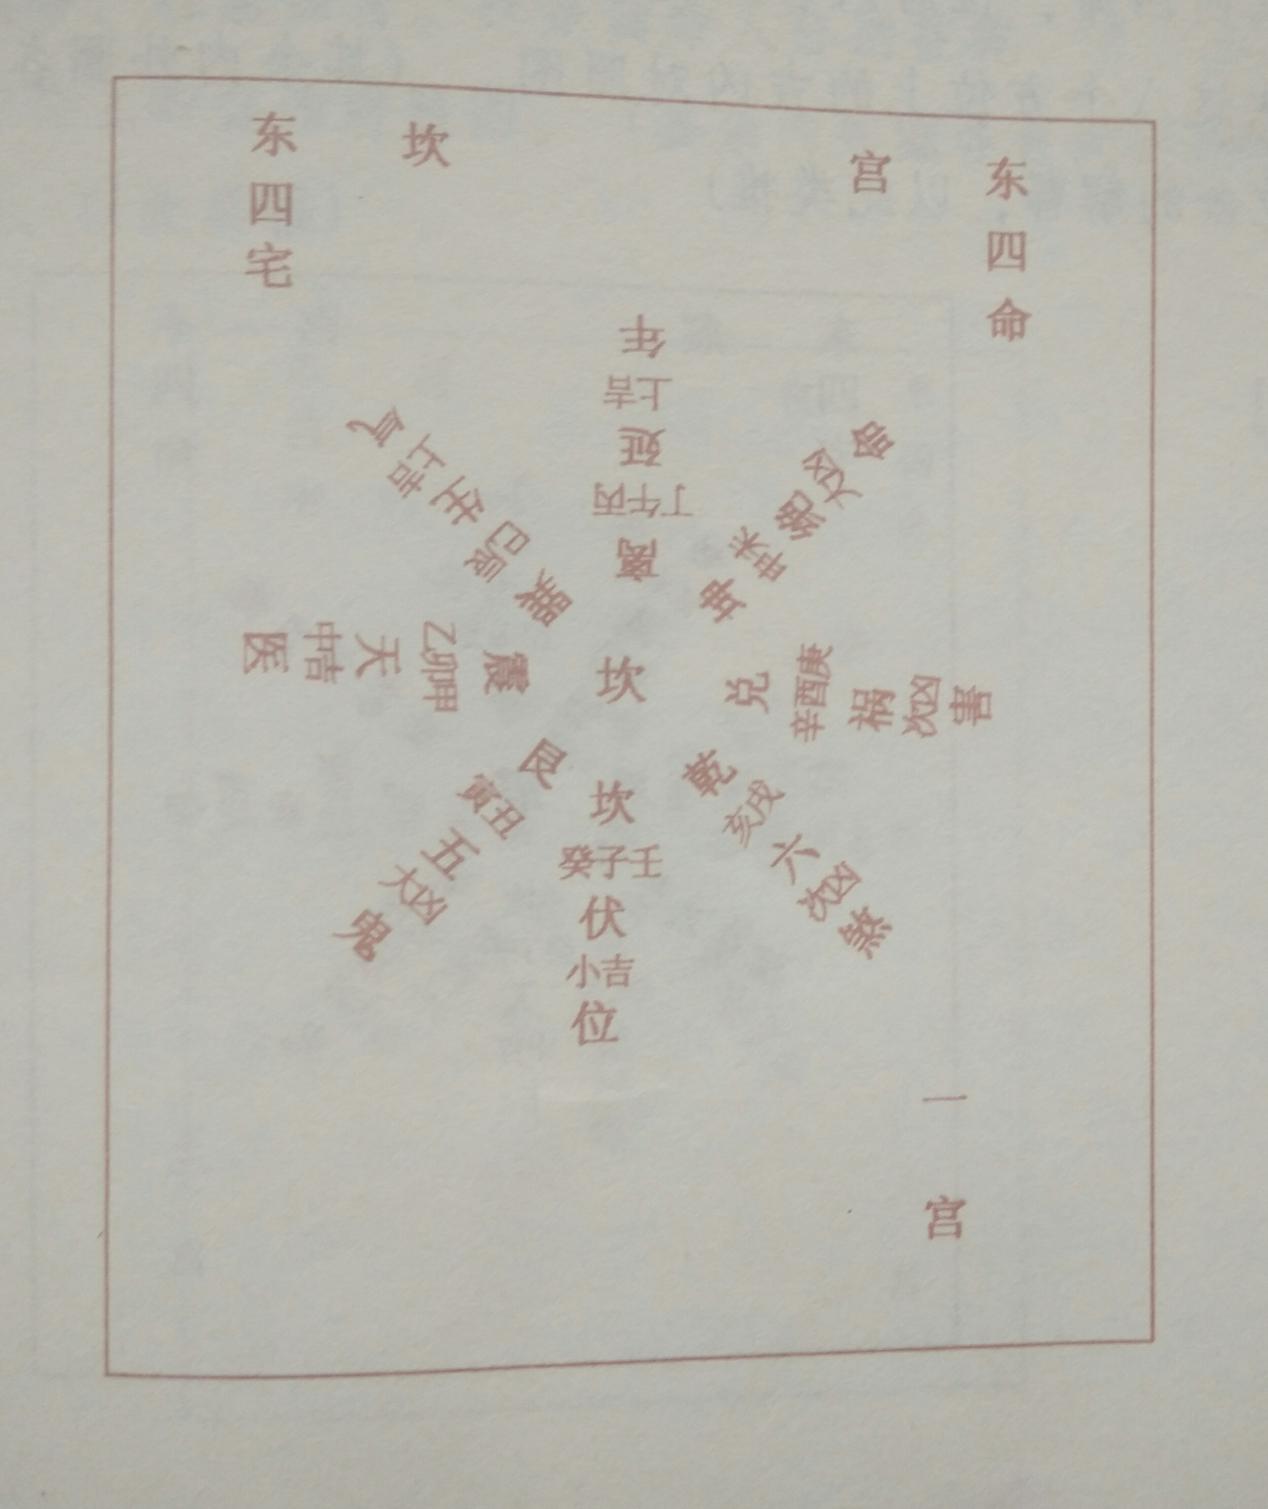 东四宅
坎宫
东四命
离
丁午丙
延
上吉
年
坤
未申
绝
大凶
命
兑
辛酉庚
祸
次凶
害
乾
亥戌
六
次凶
煞
坎
癸子壬
伏
小吉
位
艮
寅丑
五
大凶
鬼
震
乙卯甲
天
中吉
医
巽
辰巳
生
上吉
气
坎
一宫